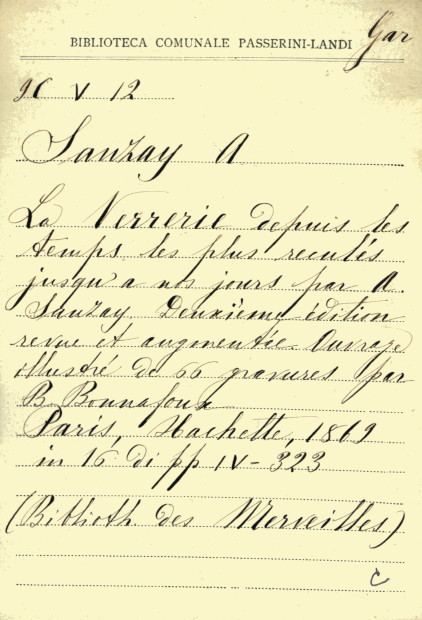 BIBLIOTECA COMUNALE PASSERINI-LANDI Gar
9C V 12
Sauzay A
La Verrerie depuis les
temps les plus reculés
jusqu'a nos jours par A.
Sauzay. Deuxième édition
revue et augmentée. Ouvrage
illustré de 66 gravures par
B. Bonnafoux
Paris, Hachette, 1869
in 16 di pp IV-323
(Biblioth des Merveilles)
C